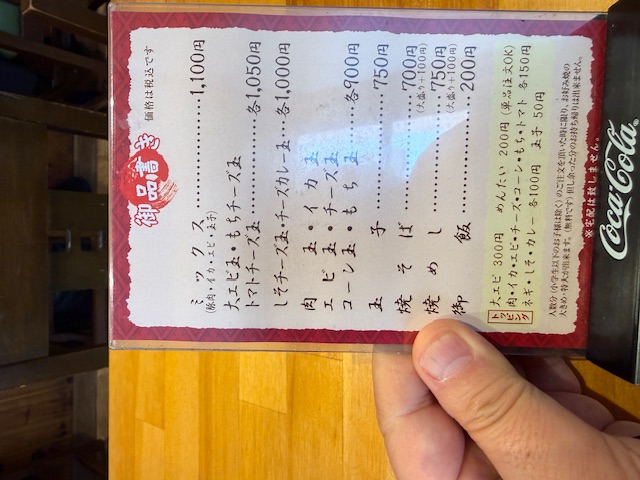 御品書き
価格は税込です
ミックス…………1,100円
(豚肉・イカ・エビ・玉子)
大エビ玉・もちチーズ玉
トマトチーズ玉…………各1,050円
しそチーズ玉・チーズカレー玉…各1,000円
肉玉・イカ玉
エビ玉・チーズ玉
コーン玉・もち玉……各900円
玉子…………750円
焼そば…………700円
(大盛り+100円)
焼めし…………750円
(大盛り+100円)
御飯…………200円
トッピング
大エビ 300円 めんたい 200円 (単品注文OK)
肉・イカ・エビ・チーズ・コーン・もち・トマト 各150円
ネギ・しそ・カレー 各100円 玉子 50円
人数分(小学生以下のお子様は除く)のご注文を頂いた時に限り、お好み焼の
大きめ・特大が出来ます。(無料です)但し余った分のお持ち帰りは出来ません。
※宅配は致しません。
Coca-Cola